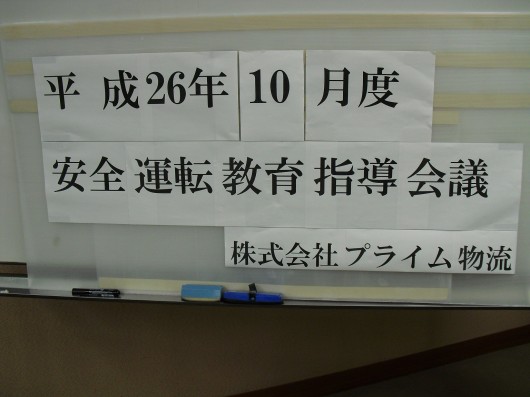 平成26年10月度
安全運転教育指導会議
株式会社プライム物流